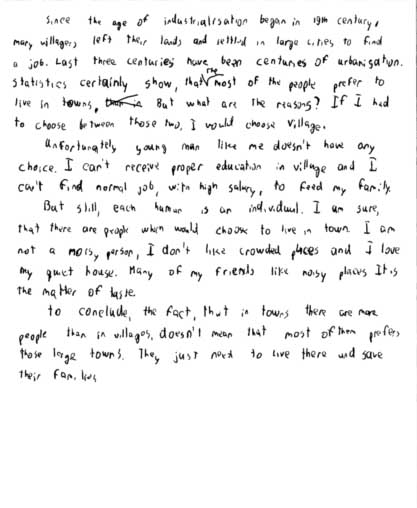 Since the age of industrialisation began in 19th century,
many villagers left their lands and settled in large cities to find
a job. Last three centuries have been centuries of urbanisation.
Statistics certainly show, that the most of the people prefer to
live in towns, But what are the reasons? If I had
to choose between those two, I would choose village.
Unfortunately young man like me doesn't have any
choice. I can't receive proper education in village and I
can't find normal job, with high salary, to feed my family.
But still, each human is an individual. I am sure,
that there are people which would choose to live in town. I am
not a noisy person, I don't like crowded places and I love
my quiet house. Many of my friends like noisy places It is
the matter of taste.
to conclude, the fact, that in towns there are more
people than in villages, doesn't mean that most of them prefers
those large towns. They just need to live there and save
their families